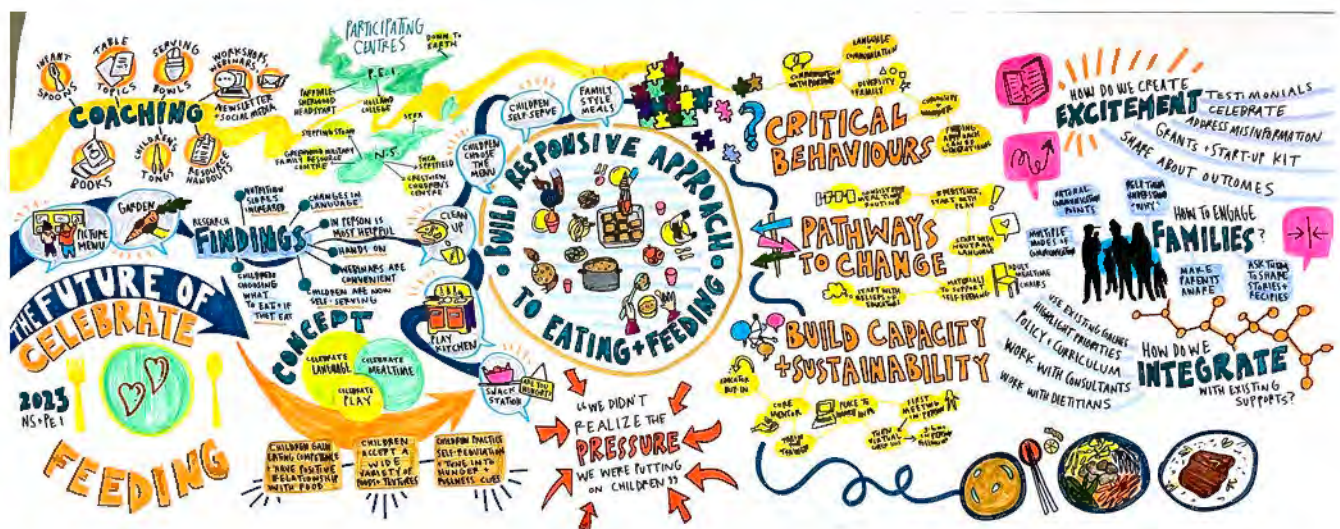 INFANT
SPOONS
TABLE
TOPICS
SERVING
BOWLS
WORKSHOPS,
WEBINARS,
NEWSLETTER
+ SOCIAL MEDIA
COACHING
BOOKS
CHILDREN'S
TONGS
RESOURCE
HANDOUTS
PARTICIPATING
CENTRES
DOWN TO
EARTH
P.E.I
SHERWOOD
HEADSTART
HOLLAND
COLLEGE
STEPPING STONES
GREENWOOD MILITARY
FAMILY RESOURCE
CENTRE
N.S.
CRESTVIEW
CHILDREN'S
CENTRE
PICTURE
MENU
GARDEN
RESEARCH
FINDINGS
NUTRITION
SCORES
INCREASED
CHANGES IN
LANGUAGE
IN PERSON IS
MOST HELPFUL
HANDS ON
WEBINARS ARE
CONVENIENT
CHILDREN ARE NOW
SELF-SERVING
CHILDREN
CHOOSING
WHAT
TO EAT + IF
THEY EAT
THE FUTURE OF
CELEBRATE
FEEDING
2023
NS + PEI
CONCEPT
CELEBRATE
LANGUAGE
CELEBRATE
MEALTIME
CELEBRATE
PLAY
CHILDREN GAIN
EATING COMPETENCE
+ HAVE POSITIVE
RELATIONSHIP
WITH FOOD
CHILDREN
ACCEPT A
WIDE
VARIETY OF
FOODS + TEXTURES
CHILDREN PRACTICE
SELF-REGULATION
+ TUNE INTO
HUNGER +
FULLNESS CUES
FAMILY
STYLE
MEALS
CHILDREN
SELF-SERVE
CHILDREN
CHOOSE
THE
MENU
CLEAN
UP
PLAY
KITCHEN
SNACK
STATION
ARE YOU
HUNGRY?
BUILD RESPONSIVE APPROACH
TO EATING + FEEDING
"WE DIDN'T
REALIZE THE
PRESSURE
WE WERE PUTTING
ON CHILDREN"
CRITICAL
BEHAVIOURS
LANGUAGE +
COMMUNICATION
DIVERSITY
+ FAMILY
PATHWAYS
TO CHANGE
CONSISTENT
MEALTIME
ROUTINE
PERSISTENCE,
START WITH
PLAY
START WITH
NEUTRAL
LANGUAGE
START WITH
BELIEFS OF
EDUCATORS
MATERIALS
TO SUPPORT
SELF-FEEDING
ADULT
MEALTIME
CHAIRS
BUILD CAPACITY
+ SUSTAINABILITY
EDUCATOR
BUY-IN
CORE
MENTOR
TRAIN
THE
TRAINER
PLACE TO
SHARE INFO
FIRST
MEETING
IN-PERSON
THEN
VIRTUAL
HOW DO WE CREATE
EXCITEMENT
TESTIMONIALS
CELEBRATE
ADDRESS MISINFORMATION
GRANTS + START-UP KIT
SHARE ABOUT OUTCOMES
HOW TO ENGAGE
FAMILIES?
NATURAL
COMMUNICATION
POINTS
MULTIPLE
MODES OF
COMMUNICATION
MAKE
PARENTS
AWARE
ASK THEM
TO SHARE
STORIES +
RECIPIES
HOW DO WE
INTEGRATE
WITH EXISTING
SUPPORTS?
USE EXISTING COACHES
HIGHLIGHT PRIORITIES
POLICY + CURRICULUM
WORK WITH CONSULTANTS
WORK WITH DIETITIANS